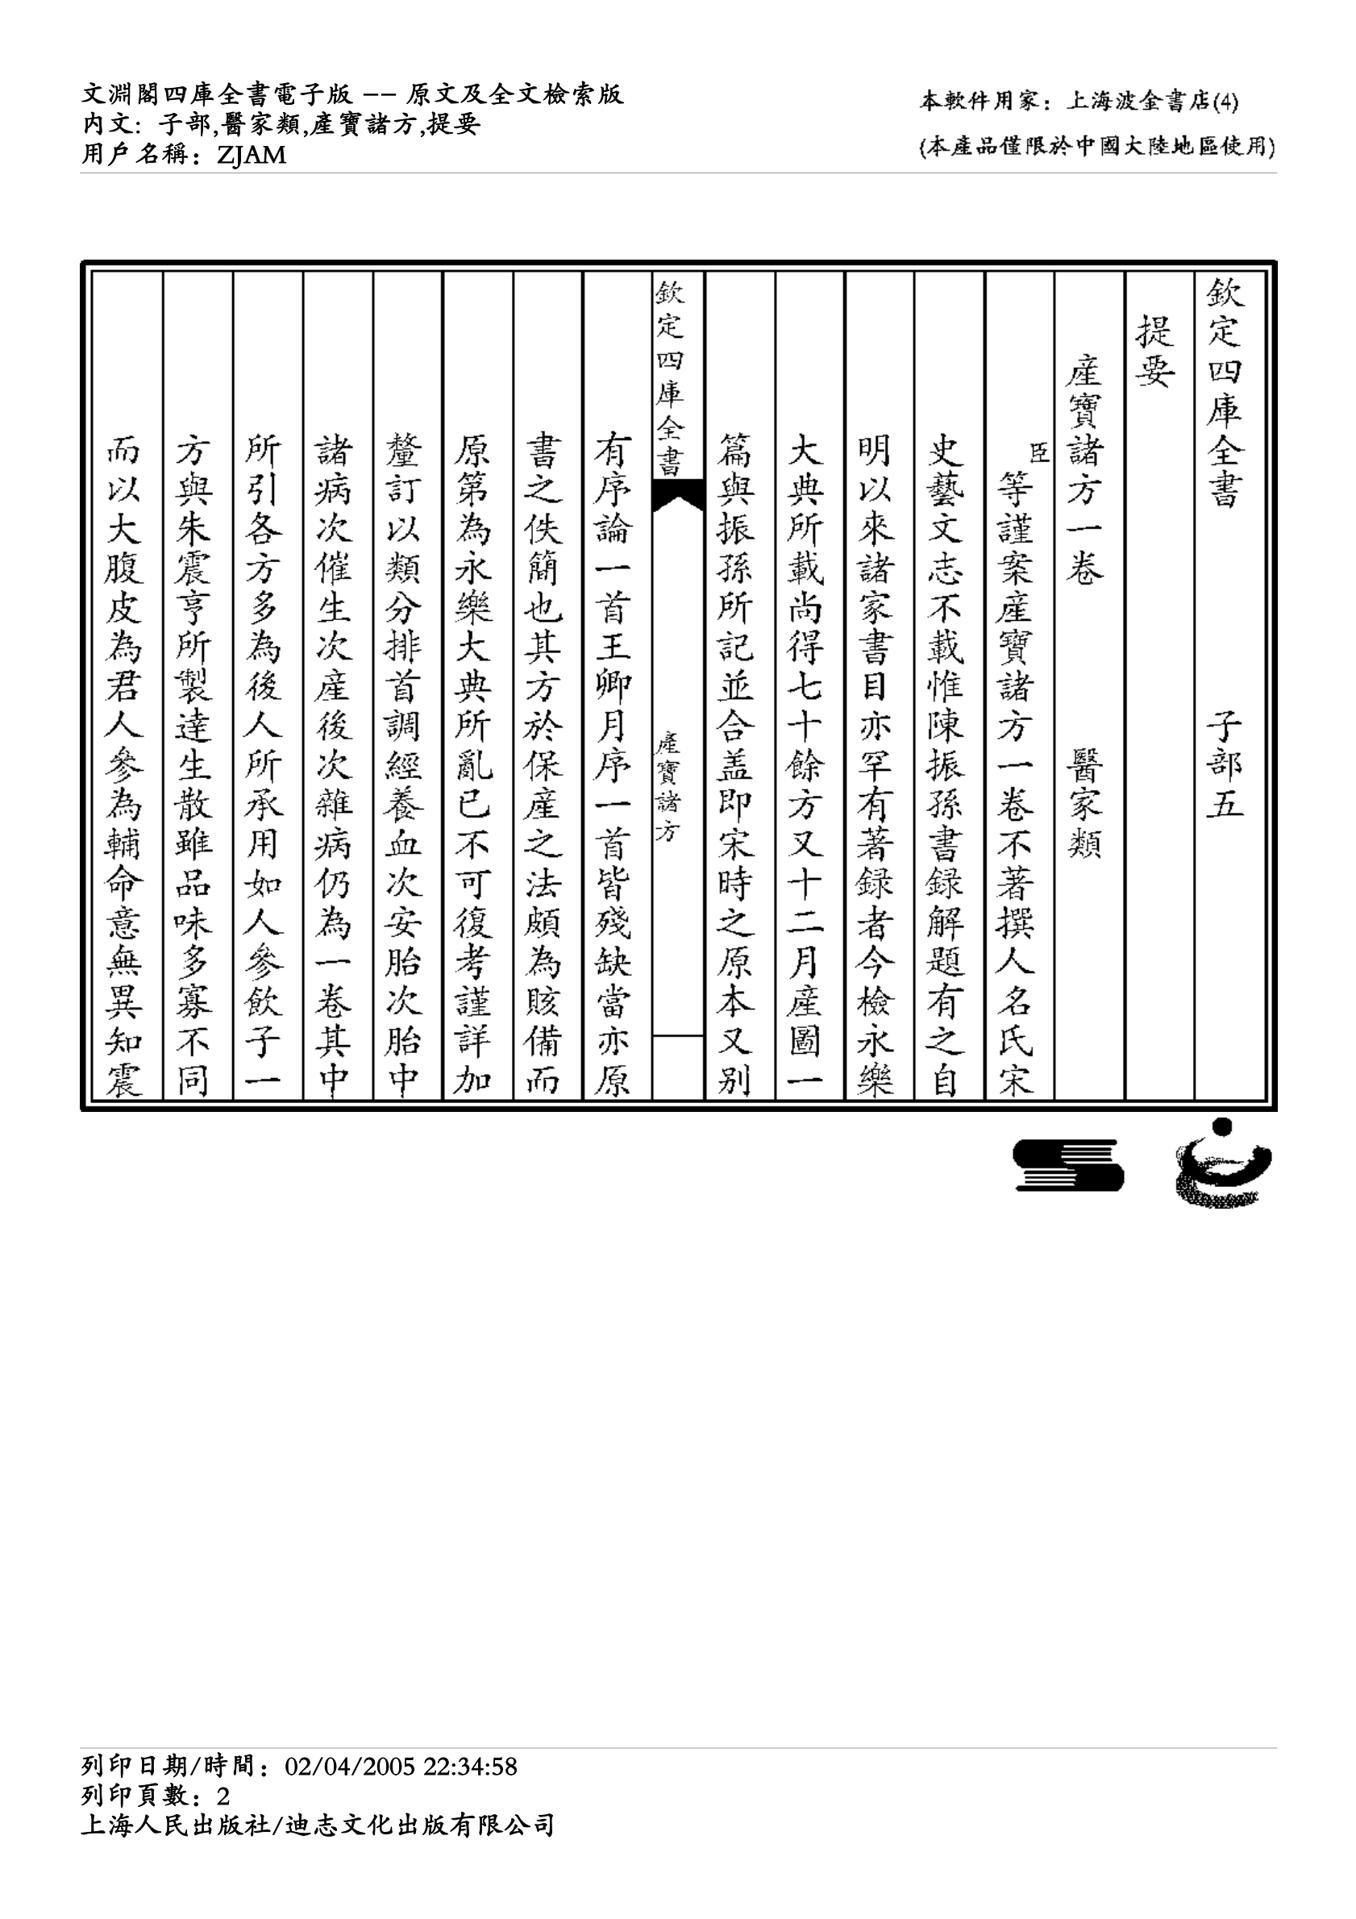 文淵閣四庫全書電子版 -- 原文及全文檢索版
內文: 子部,醫家類,產寶諸方,提要
用戶名稱: ZJAM
本軟件用家: 上海波金書店(4)
(本產品僅限於中國大陸地區使用)
欽定四庫全書 子部五
提要
產寶諸方一卷 醫家類
臣等謹案產寶諸方一卷不著撰人名氏宋
史藝文志不載惟陳振孫書録解題有之自
明以來諸家書目亦罕有著録者今檢永樂
大典所載尚得七十餘方又十二月產圖一
篇與振孫所記並合盖即宋時之原本又别
欽定四庫全書 產寶諸方
有序論一首王卿月序一首皆殘缺當亦原
書之佚簡也其方於保產之法頗為賅備而
原第為永樂大典所亂已不可復考謹詳加
釐訂以類分排首調經養血次安胎次胎中
諸病次催生次產後次雜病仍為一卷其中
所引各方多為後人所承用如人參飲子一
方與朱震亨所製達生散雖品味多寡不同
而以大腹皮為君人參為輔命意無異知震
列印日期/時間: 02/04/2005 22:34:58
列印頁數: 2
上海人民出版社/迪志文化出版有限公司